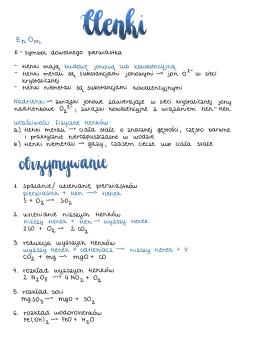 tlenki
EnOm
E - symbol dowolnego pierwiastka
- tlenki mają budowę jonową lub kowalencyjną
- tlenki metali są substancjami jonowymi → jon O²⁻ w sieci
krystalicznej
- tlenki niemetali są substancjami kowalencyjnymi
Nadtlenki → związki jonowe zawierające w sieci krystalicznej jony
nadtlenkowe O₂²⁻ i związki kowalencyjne z wiązaniem tlen-tlen.
właściwości fizyczne tlenków:
a) tlenki metali → ciała stałe o znacznej gęstości, często barwne
i praktycznie nierozpuszczalne w wodzie
b) tlenki niemetali → gazy, czasem ciecze lub ciała stałe
otrzymywanie
1. spalanie/ utlenianie pierwiastków
pierwiastek + tlen → tlenek
S + O₂ → SO₂
2. utlenianie niższych tlenków
niższy tlenek + tlen → wyższy tlenek
2CO + O₂ → 2 CO₂
3. redukcja wyższych tlenków
wyższy tlenek + odtleniacz → niższy tlenek + X
CO₂ + mg → mgO + CO
4. rozkład wyższych tlenków
2 N₂O₅ → 4 NO₂ + O₂
5. rozkład soli
mgSO₃ → mgO + SO₂
6. rozkład wodorotlenków
Fe(OH)₂ → FeO + H₂O